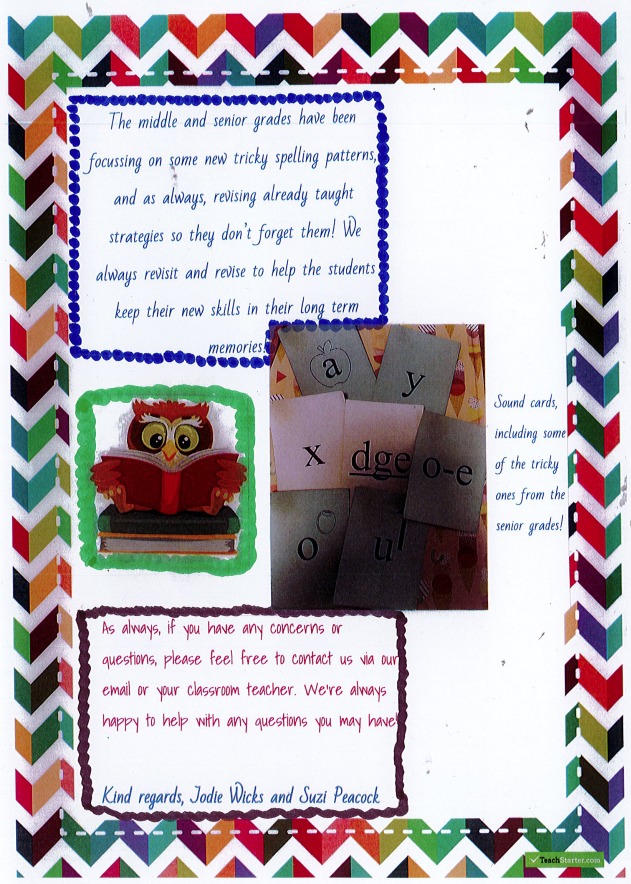 The middle and senior grades have been
focussing on some new tricky spelling patterns,
and as always, revising already taught
strategies so they don't forget them! We
always revisit and revise to help the students
keep their new skills in their long term
memories!
a
y
x
dge
o-e
o
u
Sound cards,
including some
of the tricky
ones from the
senior grades!
As always, if you have any concerns or
questions, please feel free to contact us via our
email or your classroom teacher. We're always
happy to help with any questions you may have!
Kind regards, Jodie Wicks and Suzi Peacock
TeachStarter.com